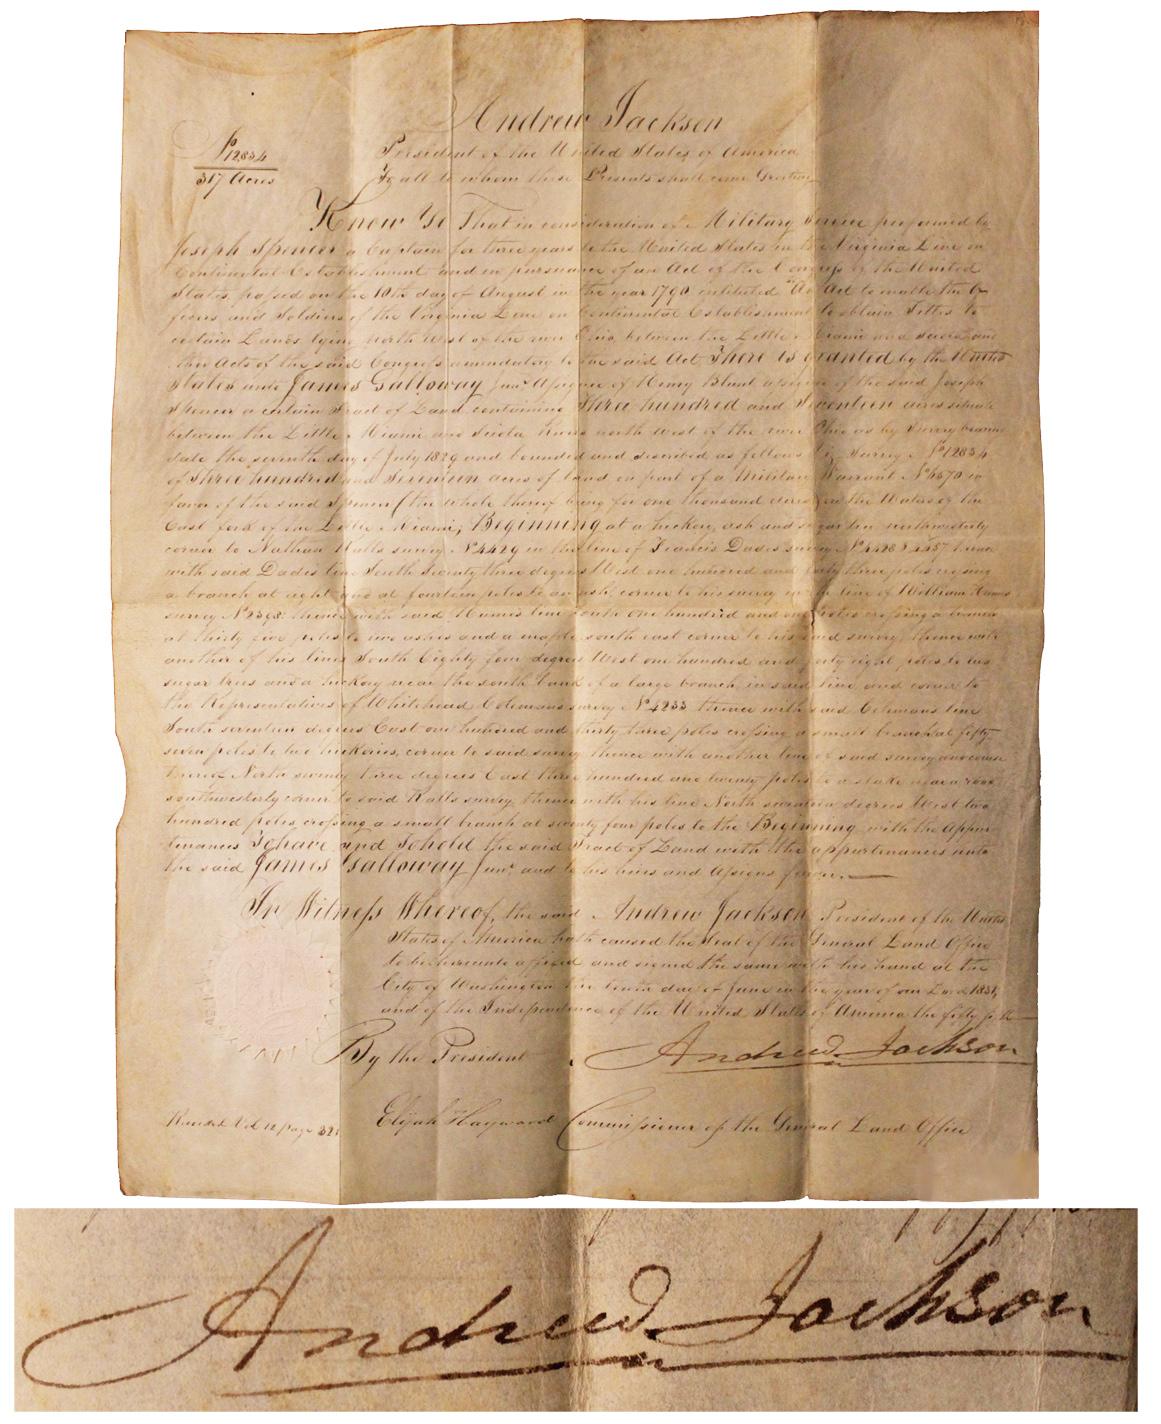 Andrew Jackson
President of the United States of America
To all to whom these Presents shall come Greeting
No 12834
317 Acres
Know Ye That in consideration of Military Service performed by
Joseph Spencer a Captain for three years to the United States in the Virginia Line on
Continental Establishment and in pursuance of an Act of the Congress of the United
States, passed on the 10th day of August in the year 1790 intituled "An Act to enable the Of-
ficers and Soldiers of the Virginia Line on Continental Establishment to obtain Titles to
certain Lands lying north West of the river Ohio between the Little Miami and Sciota" and
other Acts of the said Congress amendatory to the said Act, There is granted by the United
States unto James Galloway Junr. Assignee of Henry Blunt assignee of the said Joseph
Spencer a certain Tract of Land containing Three hundred and Seventeen acres situate
between the Little Miami and Sciota Rivers north west of the river Ohio as by Survey bearing
date the seventh day of July 1829 and bounded and described as follows to Survey No 12834
of Three hundred and Seventeen acres of land on part of a Military Warrant No 4570 in
favor of the said Spencer (the whole thereof being for one thousand acres) on the Waters of the
East fork of the Little Miami, Beginning at a hickory, ash and sugar tree northwesterly
corner to Nathan Ralls survey No 4429 in the line of Francis Dades survey No thence
with said Dades line South Seventy three degrees West one hundred and forty three poles crossing
a branch at eight and at fourteen poles to an ash, corner to his survey in the line of William
survey No thence with said line south one hundred and one poles crossing a branch
at thirty five poles to two ashes and a maple south east corner to his said survey, thence with
another of his lines South Eighty four degrees West one hundred and forty eight poles to two
sugar trees and a hickory near the south bank of a large branch in said line and corner to
the Representatives of Whitehead Colemans survey No 4233 thence with said Colemans line
South seventeen degrees East one hundred and thirty three poles crossing a small branch at fifty
seven poles to two hickories, corner to said survey thence with another line of said survey and course
thereof North seventy three degrees East three hundred and twenty poles to a stake near a road
southwesterly corner to said Ralls survey, thence with his line North seventeen degrees West two
hundred poles crossing a small branch at seventy four poles to the Beginning, with the Appur-
tenances To have and To hold the said Tract of Land with the appurtenances unto
the said James Galloway Junr. and to his heirs and Assigns forever.
In Witness Whereof, the said Andrew Jackson President of the United
States of America hath caused the Seal of the General Land Office
to be hereunto affixed and signed the same with his hand at the
City of Washington the tenth day of June in the year of our Lord 1831,
and of the Independence of the United States of America the fifty fifth
By the President Andrew Jackson
Elijah Hayward Commissioner of the General Land Office
Recorded Vol 12 page 321
Andrew Jackson